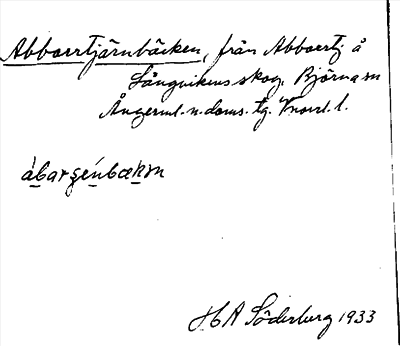 Abborrtjärnbäcken, från Abborrtj. å
Långvikens skog, Björna sn
Ångerml. n. doms. tg. Vnorrl. l.
ábarʂéńbækɳ
H A Söderberg 1933